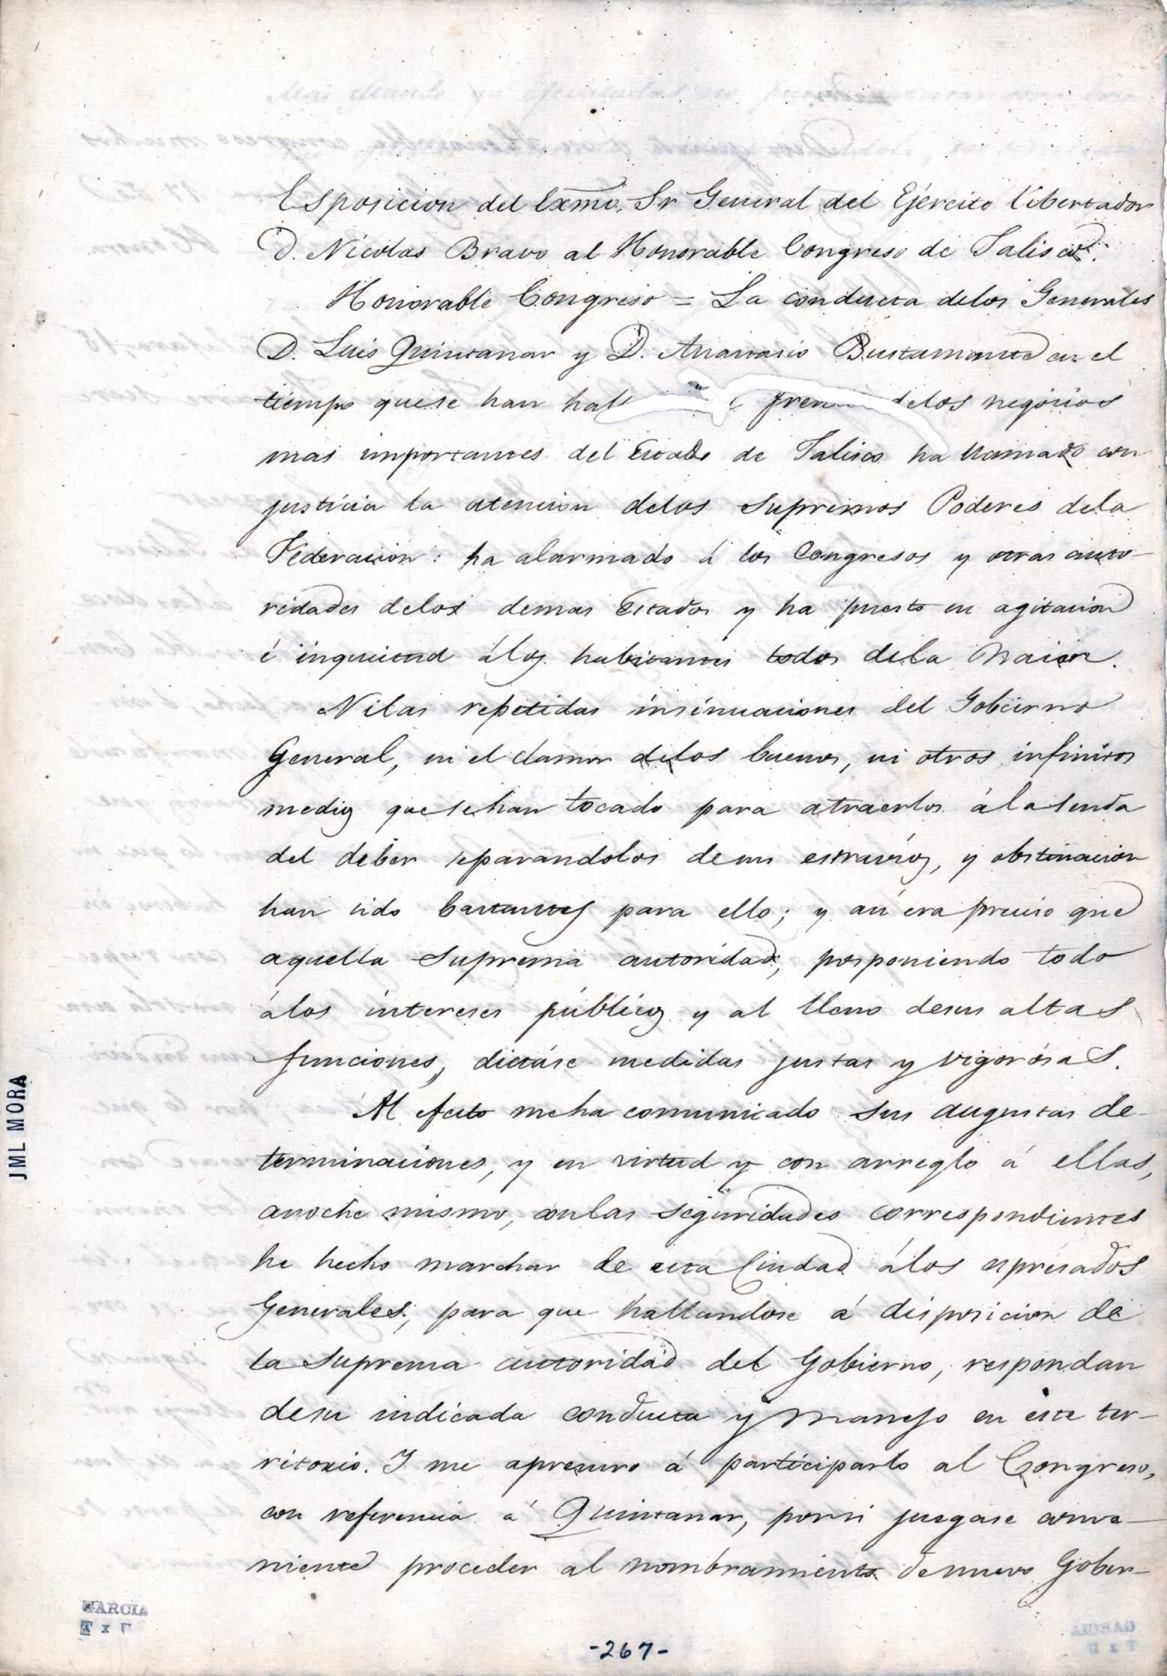 Esposicion del Exmo. Sr General del Ejército libertador
D. Nicolas Bravo al Honorable Congreso de Jalisco.
Honorable Congreso = La conducta delos Generales
D. Luis Quintanar y D. Anastasio Bustamante en el
tiempo quese han hall fren delos negocios
mas importantes del Estado de Jalisco ha llamado con
justicia la atencion delos Supremos Poderes dela
Federacion: ha alarmado á los Congresos y otras auto-
ridades delos demas Estados y ha puesto en agitacion
é inquietud álos habitantes todos dela Nacion.
Nilas repetidas insinuaciones del Gobierno
General, ni el clamor delos buenos, ni otros infinitos
medios que sehan tocado para atraerlos ála senda
del deber separandolos desus estravios, y obstinacion
han sido bastantes para ello; y asi era preciso que
aquella Suprema autoridad, posponiendo todo
álos intereses públicos y al lleno desus altas
funciones, dictáse medidas justas y vigorósas.
Al efecto meha comunicado sus augustas de-
terminaciones, y en virtud y con arreglo á ellas,
anoche mismo, conlas seguridades correspondientes
he hecho marchar de esta Ciudad álos espresados
Generales, para que hallandose á disposicion de
la Suprema autoridad del Gobierno, respondan
desu indicada conducta y manejo en este ter-
ritorio. I me apresuro á participarlo al Congreso,
con referencia á Quintanar, porsi juzgase conve-
niente proceder al nombramiento denuevo Gober-
JML MORA
GARCIA
-267-